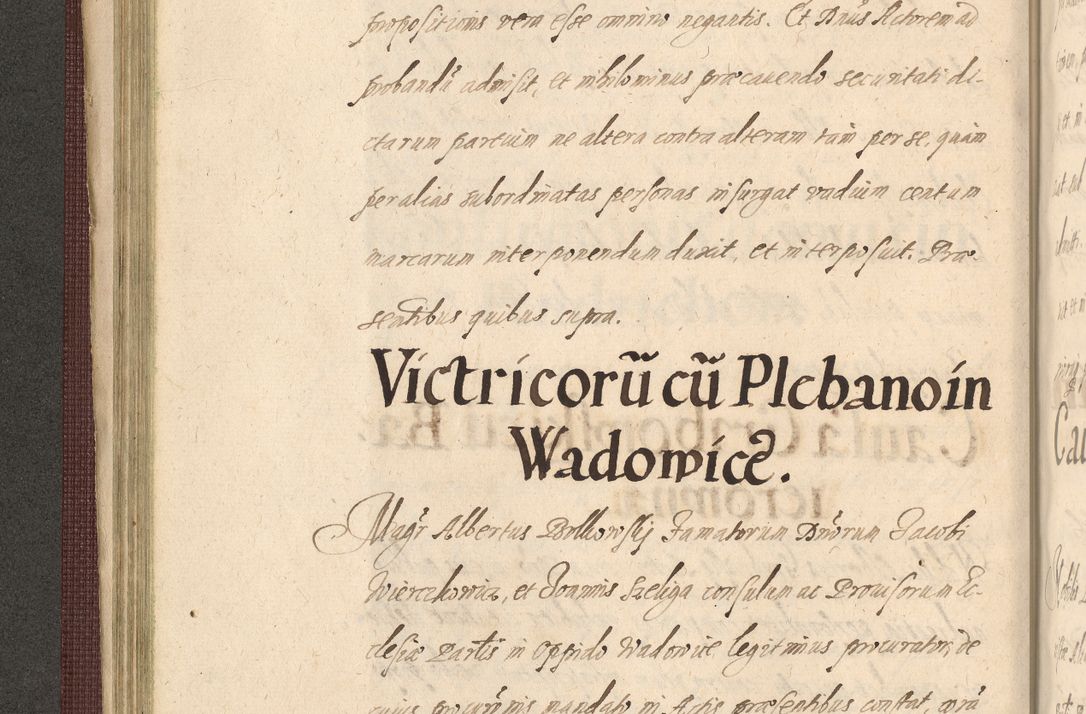 propositionis vera esse omnino negantis. Et Dnus Actorem ad
probandũ admisit, et nihilominus præcavendo securitati di-
ctarum partium ne altera contra alteram tam per se, quàm
per alias subordinatas personas insurgat vadium centum
marcarum interponendum duxit, et interposuit. Præ-
sentibus quibus supra.
Victricorũ cũ Plebano in
Wadowicẽ.
Magr Albertus Famatorum Dnorum Jacobi
Wierczkowicz, et Joannis Szeliga consulum ac Provisorum Ec-
clesiæ Partis in Oppido Wadowice legitimus procurator, de
cuius mandato in Actis præsentibus constat, corã